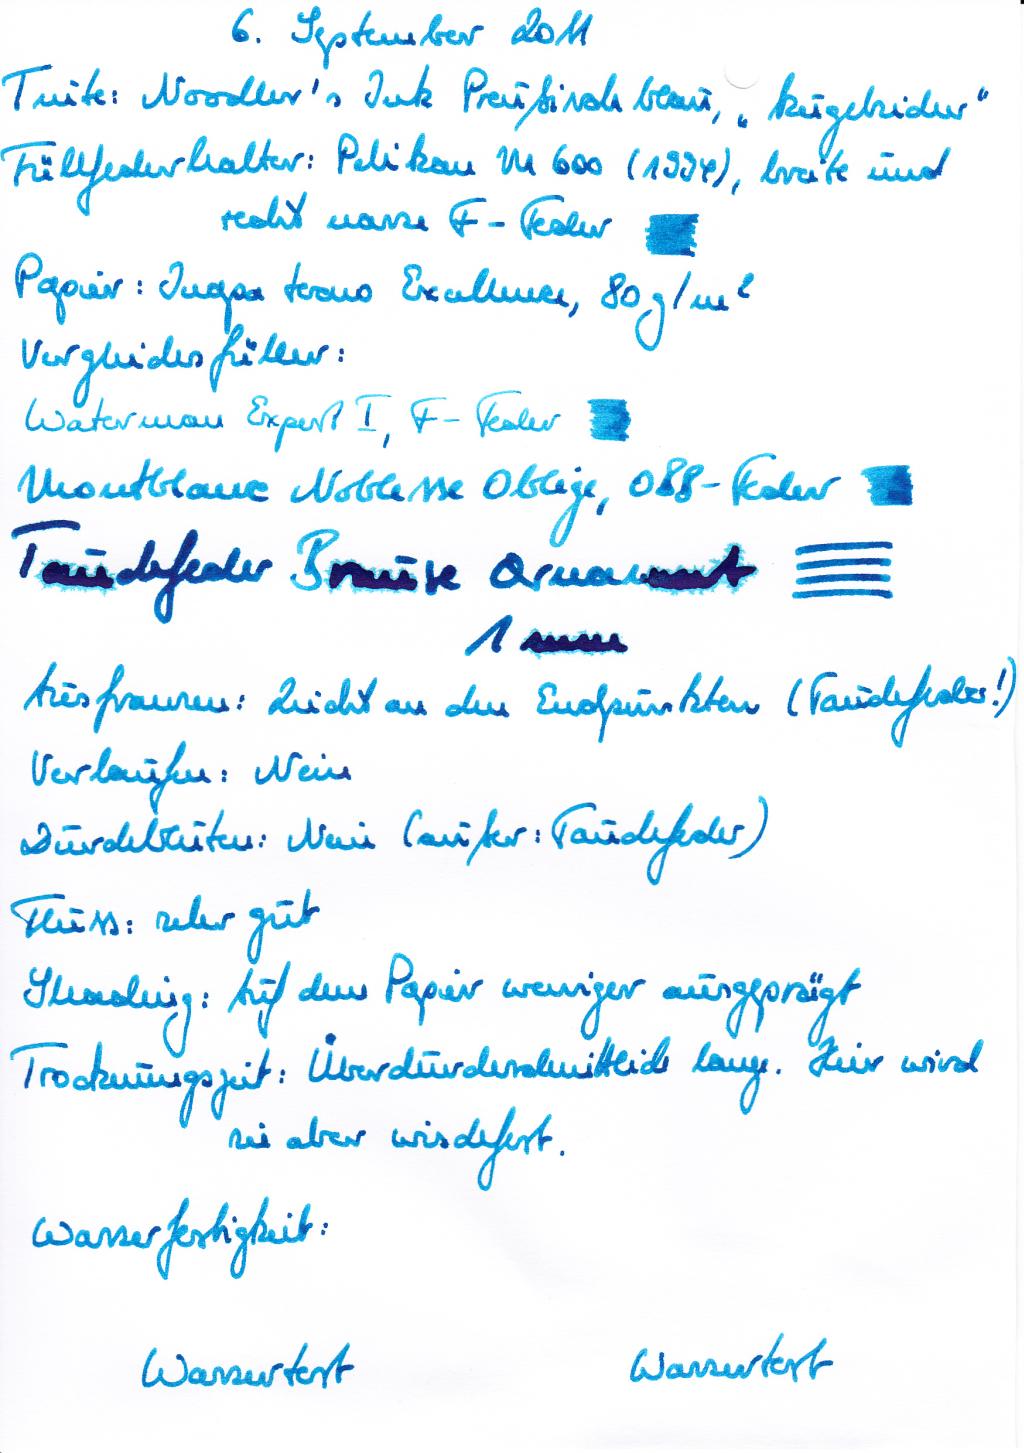 6. September 2011
Tinte: Noodler's Ink Preußischblau, „
Füllfederhalter: Pelikan M 600 (1994), breite und
recht nasse F-Feder
Papier: Inapa tecno Excellence, 80 g/m²
Vergleichsfüller:
Waterman Expert I, F-Feder
Montblanc Noblesse Oblige, OBB-Feder
Tauchfeder Brause Ornament
1 mm
Ausfransen: Leicht an den Endpunkten (Tauchfeder!)
Verlaufen: Nein
Durchbluten: Nein (außer: Tauchfeder)
Fluss: sehr gut
Shading: Auf dem Papier weniger ausgeprägt
Trocknungszeit: Überdurchschnittlich lang. Hier wird
sie aber wischfest.
Wasserfestigkeit:
Wassertest Wassertest